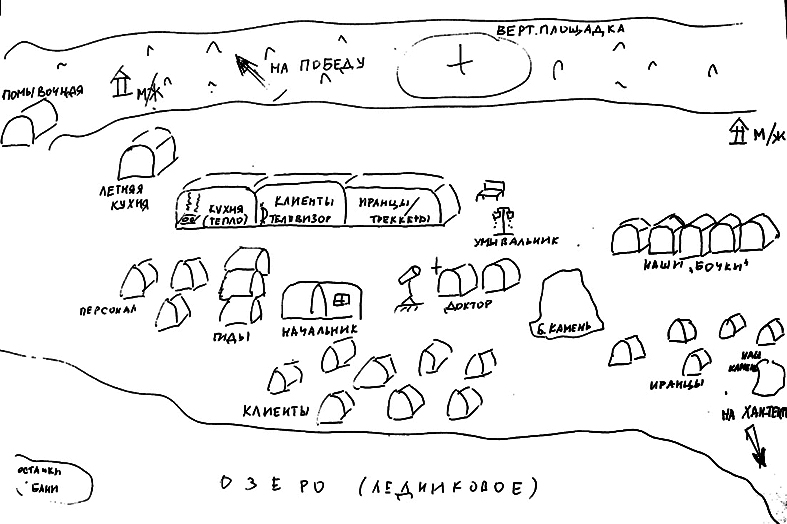 ВЕРТ. ПЛОЩАДКА
НА ПОБЕДУ
ПОМЫВОЧНАЯ
М/Ж
М/Ж
ЛЕТНЯЯ
КУХНЯ
КУХНЯ
(ТЕПЛО)
КЛИЕНТЫ
ТЕЛЕВИЗОР
ИРАНЦЫ/
ТРЕККЕРЫ
УМЫВАЛЬНИК
НАШИ „БОЧКИ"
ПЕРСОНАЛ
ГИДЫ
НАЧАЛЬНИК
ДОКТОР
Б. КАМЕНЬ
КЛИЕНТЫ
ИРАНЦЫ
НАШ
КАМЕНЬ
НА ХАНТЕНГ
ОСТАНКИ
БАНИ
ОЗЕРО (ЛЕДНИКОВОЕ)